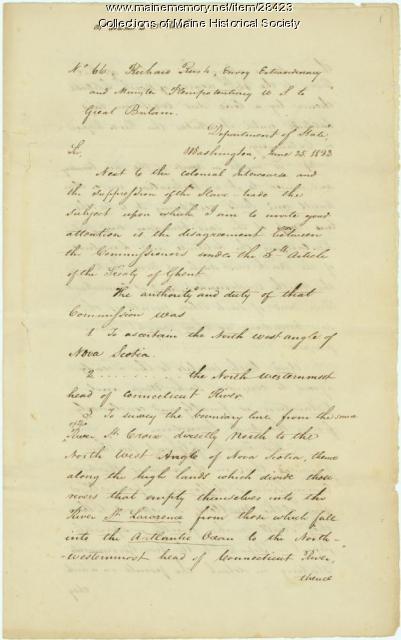 www.mainememory.net/item/28423
Collections of Maine Historical Society
1
No. 66. Richard Rush, Envoy Extraordinary
and Minister Plenipotentiary U S to
Great Britain.
Department of State,
Sir, Washington, June 25. 1823
Next to the colonial Intercourse and
the suppression of the Slave trade the
subject upon which I am to invite your
attention is the disagreement between
the Commissioners under the 5th Article
of the Treaty of Ghent.
The authority and duty of that
Commission was
1 To ascertain the North west angle of
Nova Scotia.
2 . . . . . . . the North westernmost
head of Connecticut River.
3 To survey the boundary line from the source
of the River St Croix directly North to the
North West Angle of Nova Scotia, thence
along the high lands which divide those
rivers that empty themselves into the
River St. Lawrence from those which fall
into the Atlantic Ocean to the North-
westernmost head of Connecticut River,
thence